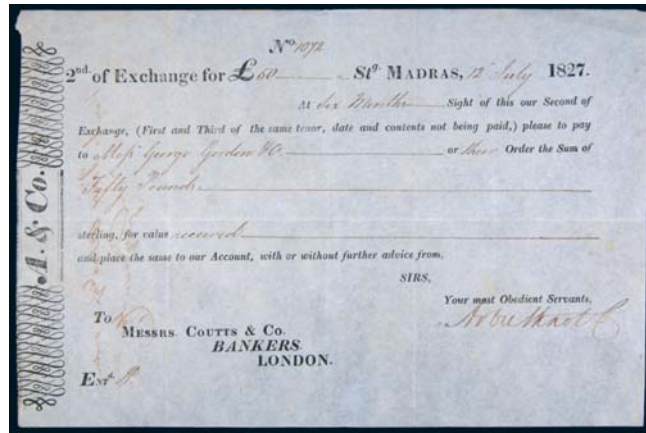 No. 1072
2nd. of Exchange for £50 Stg. MADRAS, 12 July 1827.
At Six Months Sight of this our Second of
Exchange, (First and Third of the same tenor, date and contents not being paid,) please to pay
to Mess George Gordon & Co. or their Order the Sum of
Fifty Pounds
sterling, for value received
and place the same to our Account, with or without further advice from,
SIRS,
Your most Obedient Servants,
Arbuthnot & Co
To
MESSRS. COUTTS & Co.
BANKERS.
LONDON.
ENTd.
A. & Co.